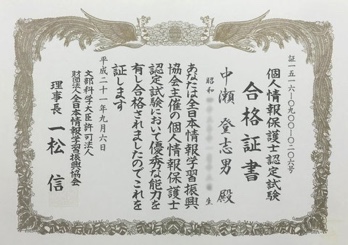 証一五一六-〇九〇〇-〇二〇六号
個人情報保護士認定試験
合格証書
中瀬 登志男 殿
昭和 生
あなたは全日本情報学習振興
協会主催の個人情報保護士
認定試験において優秀な能力を
有し合格されましたのでこれを
証します
平成二十一年九月六日
文部科学大臣許可法人
財団法人全日本情報学習振興協会
理事長 一松 信